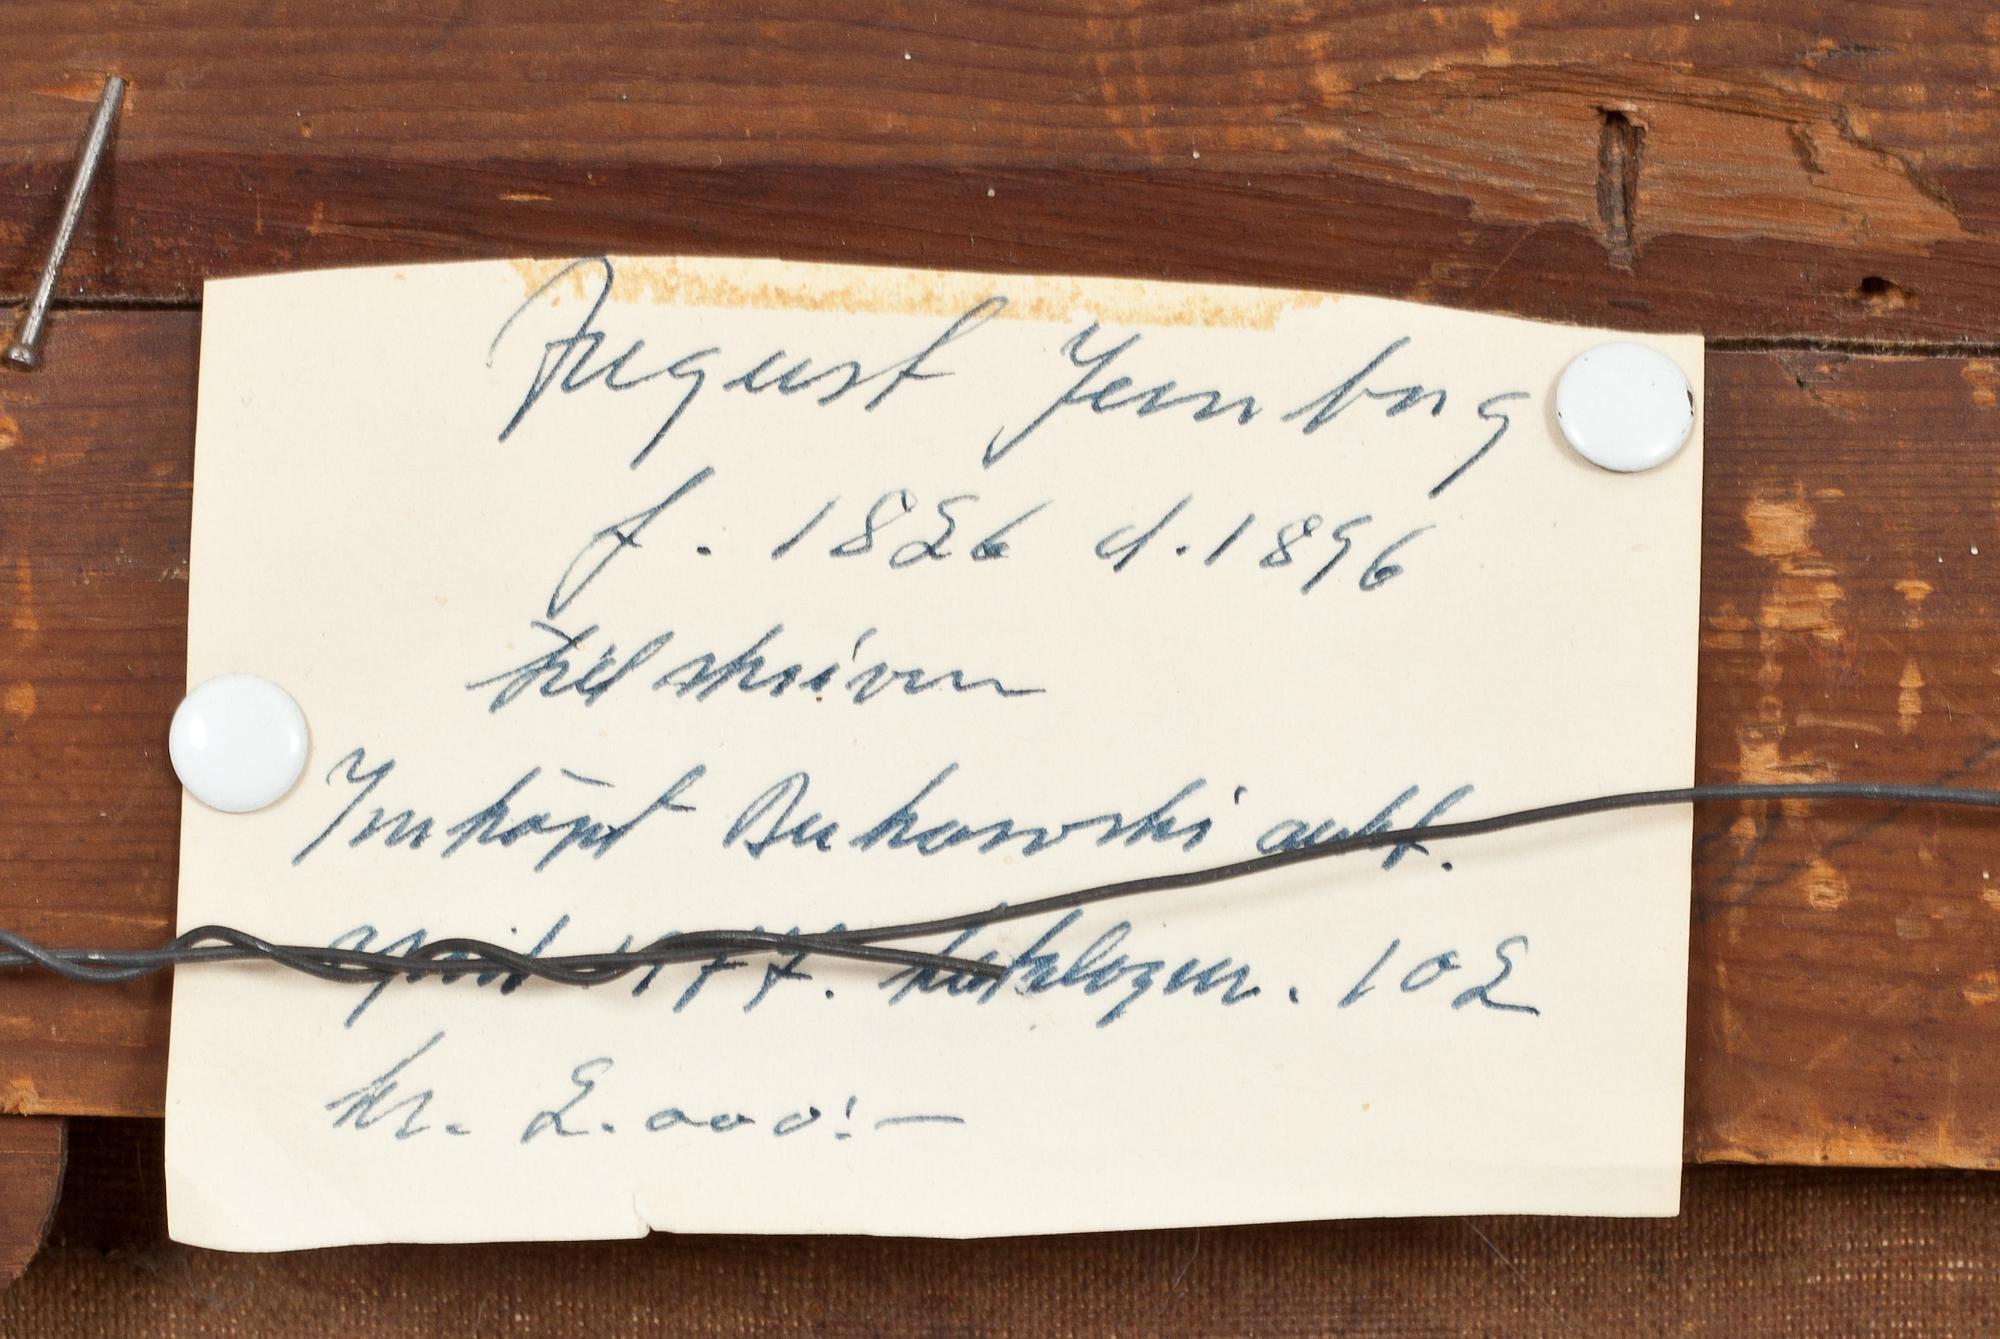 August Jernberg
f. 1826 d. 1896
tillskriven
Inköpt Bukowski aukt.
april 1977. katalognr. 102
kr. 2.000:-